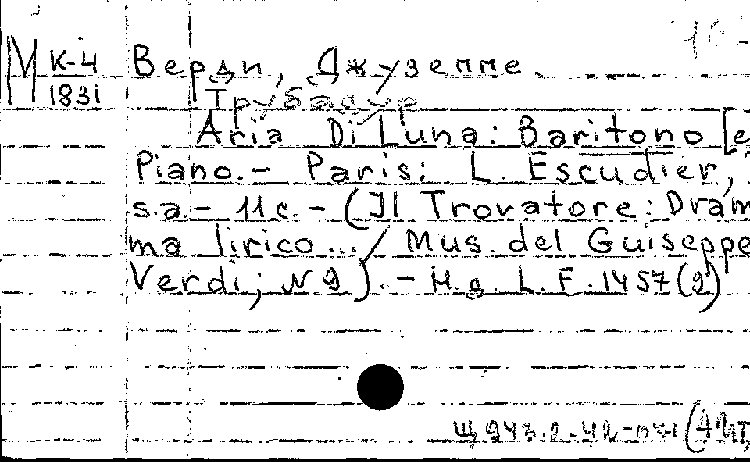 М К-4 Верди, Джузеппе.
1831 Трубадур
Aria Di Luna: Baritono [e
Piano. - Paris: L. Escudier,
s.a - 11 c. - (Il Trovatore: Dram
ma lirico... / Mus. del Guiseppe
Verdi; N 2). - Н.д. L.E. 1457(2)